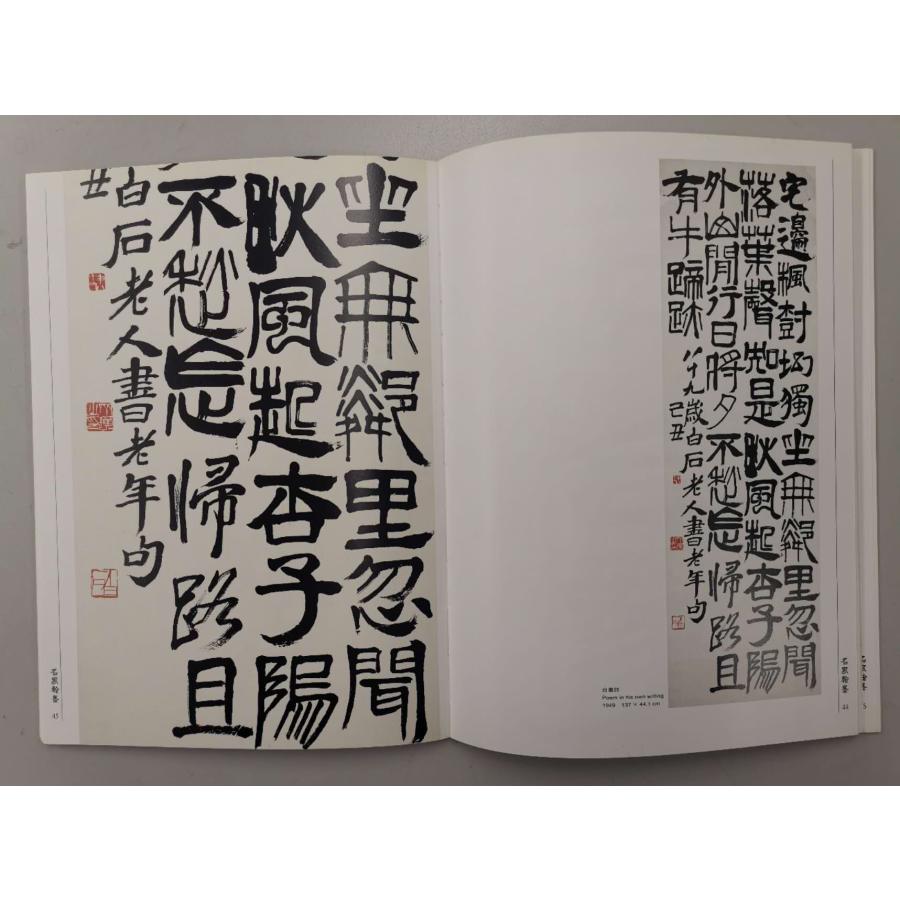 宅邊楓樹坳獨坐無鄰里忽聞
落葉聲知是秋風起杏子隖
外山閒行日將夕不愁忘歸路且
有牛蹄跡
八十九歲白石老人書老年句
己丑
自書詩
Poem in his own writing
1949 137 × 44.1 cm
名家翰墨
44
坐無鄰里忽聞
秋風起杏子隖
不愁忘歸路且
白石老人書老年句
丑
名家翰墨
45